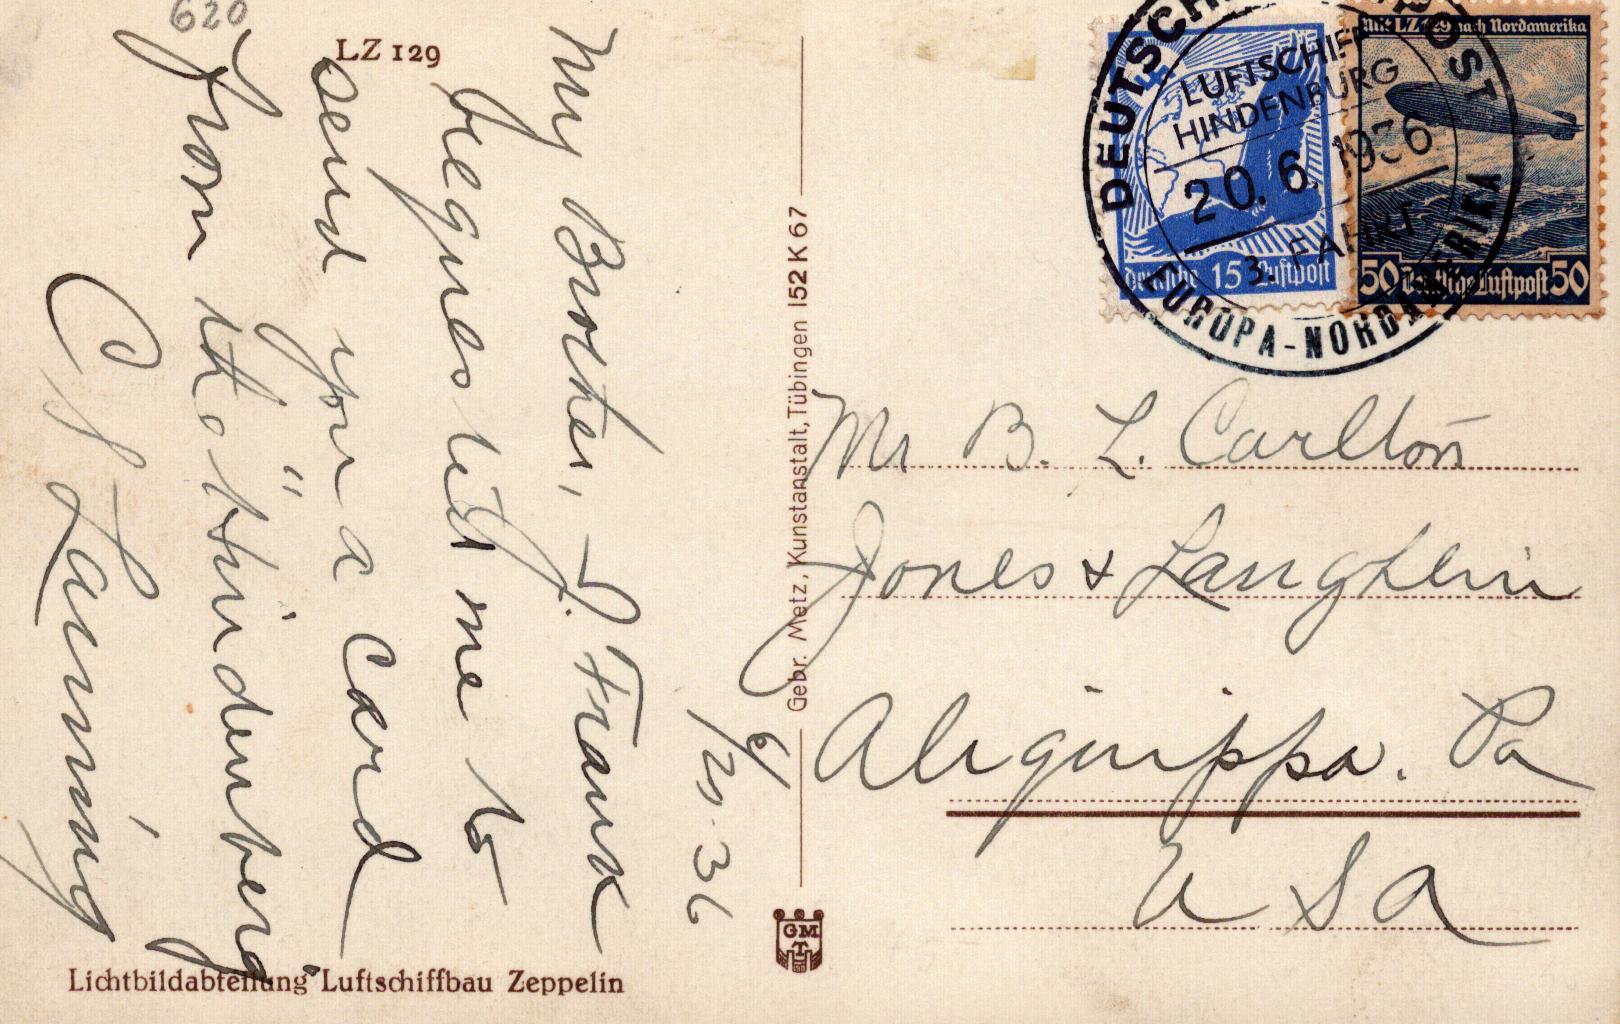 620
LZ 129
6/20-36
My Brother, J. Frank
requested me to
send you a card
from the "Hindenberg"
C J Lanning
Lichtbildabteilung Luftschiffbau Zeppelin
Gebr. Metz, Kunstanstalt, Tübingen 152 K 67
GMT
DEUTSCHE LUFTPOST
LUFTSCHIFF
HINDENBURG
20. 6. 1936
3. FAHRT
EUROPA-NORDAMERIKA
Deutsche 15 Luftpost
Mit LZ 129 nach Nordamerika
50 Deutsche Luftpost 50
Mr B. L. Carlton
Jones & Laughlin
Aliquippa. Pa
U S A